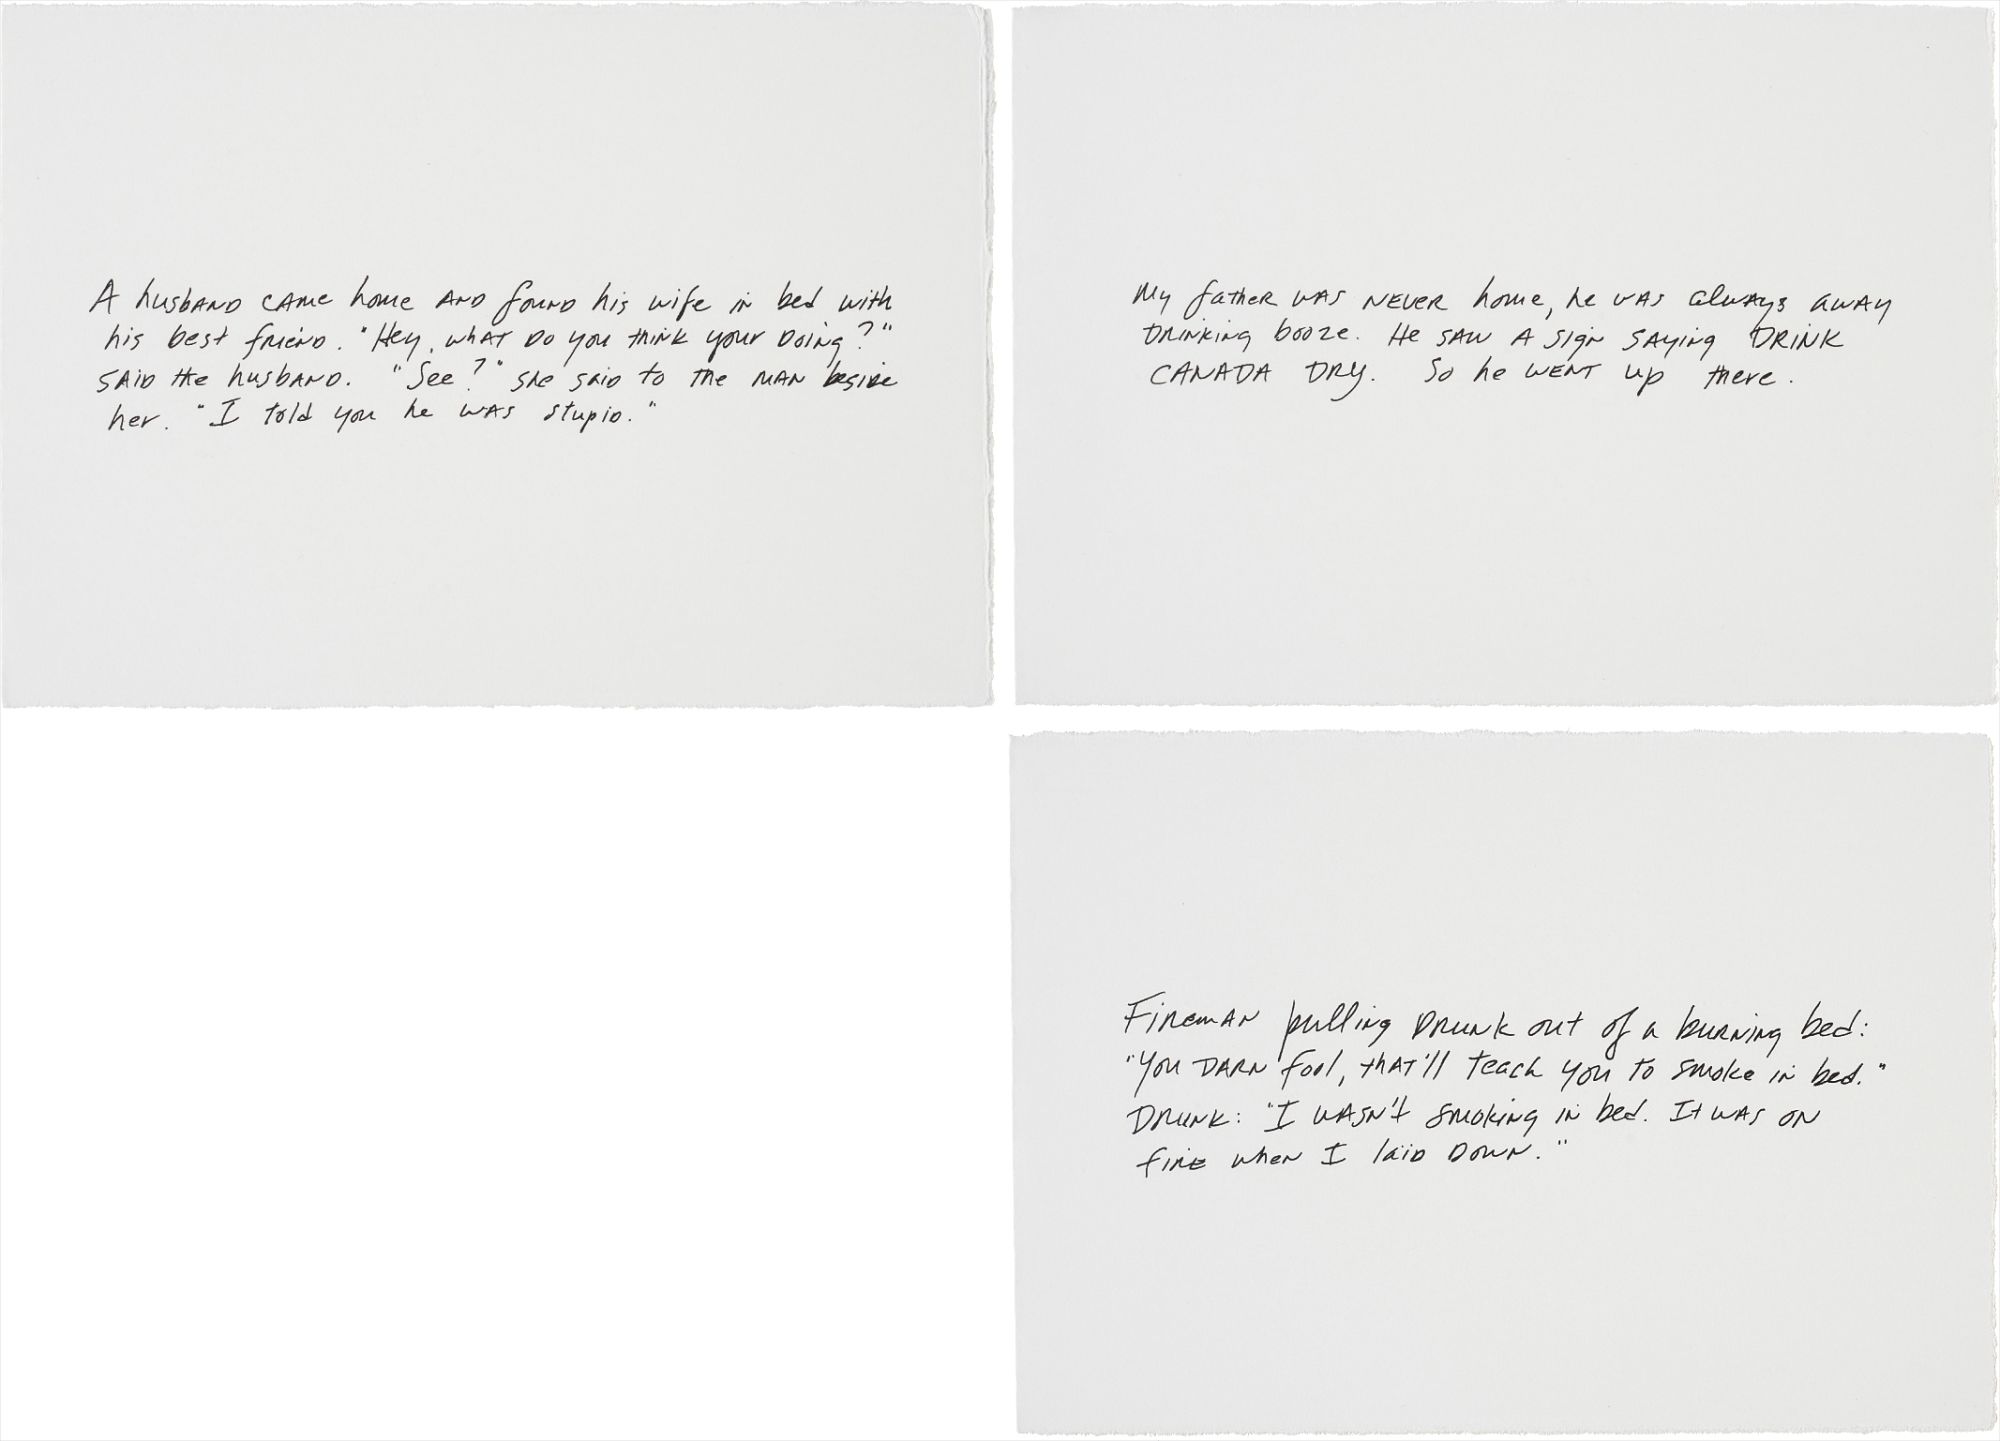 A husband came home and found his wife in bed with
his best friend. "Hey, what do you think your doing?"
said the husband. "See?" she said to the man beside
her. "I told you he was stupid."
My father was never home, he was always away
drinking booze. He saw a sign saying DRINK
CANADA DRY. So he went up there.
Fireman pulling drunk out of a burning bed:
"You darn fool, that'll teach you to smoke in bed."
Drunk: "I wasn't smoking in bed. It was on
fire when I laid down."